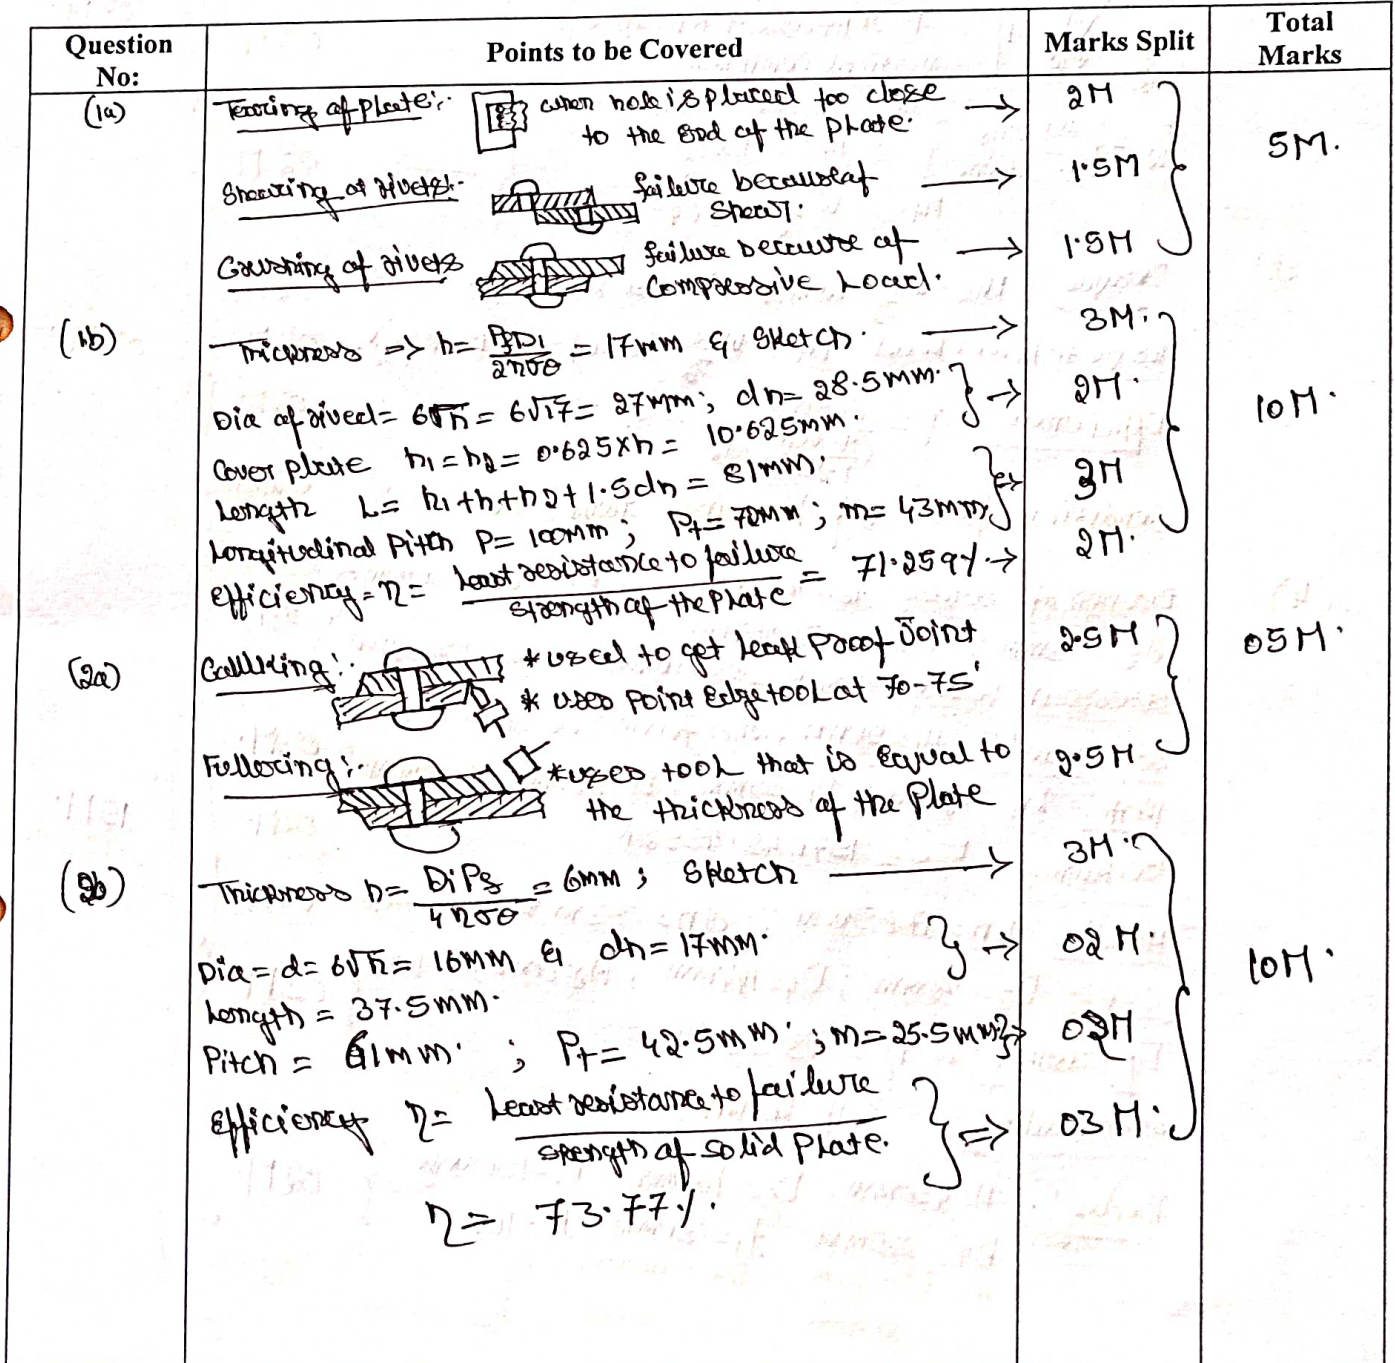 Question No:
Points to be Covered
Marks Split
Total Marks
(1a)
Tearing of plate:- when hole is placed too close → 2M
to the end of the plate.
5M.
Shearing of rivets:- failure because of → 1.5M
shear.
Crushing of rivets failure because of → 1.5M
Compressive Load.
(1b)
Thickness => h = PgDi / 2ησθ = 17mm & Sketch. → 3M.
Dia of rived = 6√h = 6√17 = 27mm; dh = 28.5mm. } → 2M.
10M.
Cover plate h1 = h2 = 0.625xh = 10.625mm.
Length L = h1+h+h2+1.5dh = 81mm.
Longitudinal Pitch P = 100mm; Pt = 70mm; m = 43mm } → 3M
efficiency = η = Least resistance to failure / Strength of the Plate = 71.259% → 2M.
(2a)
Caulking:- * used to get Leak Proof Joint 2.5M
05M.
* uses Point Edge tool at 70-75°
Fullering:- * uses tool that is Equal to 2.5M
the thickness of the Plate
(2b)
Thickness h = DiPg / 4ησθ = 6mm; Sketch → 3M.
Dia = d = 6√h = 16mm & dh = 17mm. } → 02M.
10M.
Length = 37.5mm.
Pitch = 61mm. ; Pt = 42.5mm. ; m = 25.5mm } → 02M
Efficiency η = Least resistance to failure / strength of solid Plate. } => 03M.
η = 73.77%.